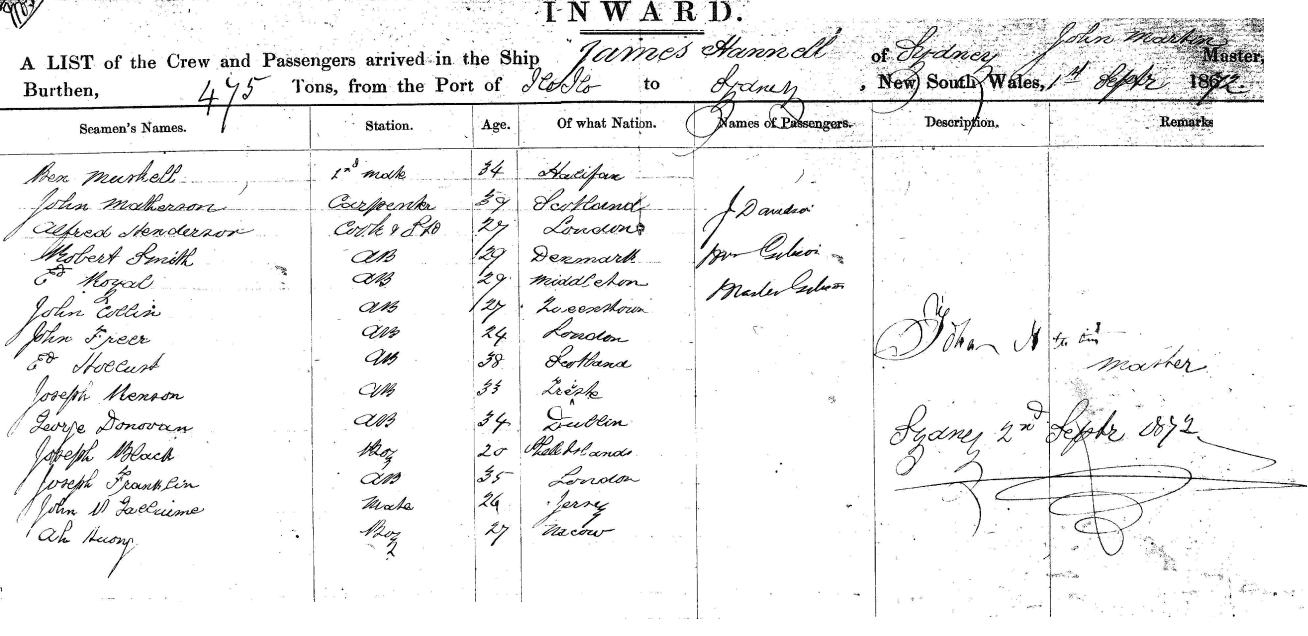 INWARD.
A LIST of the Crew and Passengers arrived in the Ship James Hannell of Sydney John Martin Master,
Burthen, 475 Tons, from the Port of IloIlo to Sydney, New South Wales, 1st Septr 1872.
Seamen's Names. Station. Age. Of what Nation. Names of Passengers. Description. Remarks
Ben Mushell 1st mate 34 Halifax
John Matherson Carpenter 39 Scotland J Davidson
Alfred Henderson Cook & Std 27 London
Robert Smith AB 29 Denmark Gibson
Ed Royal AB 29 Middleton Master Gibson
John Collin AB 27 Queenstown
John Freer AB 24 London
Ed AB 38 Scotland Master
Joseph Henson AB 33
George Donovan AB 34 Dublin Sydney 2nd Septr 1872
Joseph Black Boy 20
Joseph Franklin AB 35 London
John Mate 26 Jersey
Ah Huong Boy 27 Macow